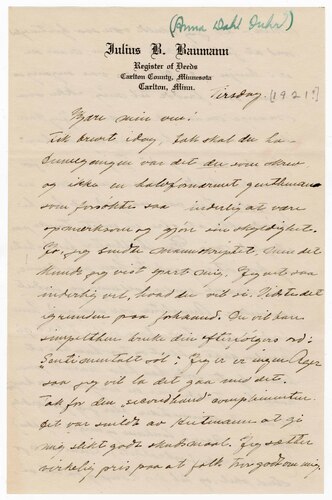 (Anna Dahl Fuhr?)
Julius B. Baumann
Register of Deeds
Carlton County, Minnesota
Carlton, Minn.
Tirsdag. [1921?]
Kjære min ven!
Fik brevet idag, tak skal du ha.
Denne gangen var det du som skrev
og ikke en halvfornærmet gentleman
som forsøkte saa inderlig at være
opmerksom og gjøre sin skyldighet.
Ja, jeg sendte manuskriptet, men det
kunde jeg vist spart mig. Jeg vet saa
inderlig vel, hvad du vil si. Vidste det
igrunden paa forhaand. Du vil bare
simpelthen bruke din efterfølgers ord:
"Sentimentalt
Jeg er ingen
saa jeg vil la det gaa med det.
Tak for den "secondhand" complimenten.
Det var snildt av at gi
mig slikt godt skudsmaal. Jeg sætter
virkelig pris paa at folk tror godt om mig,